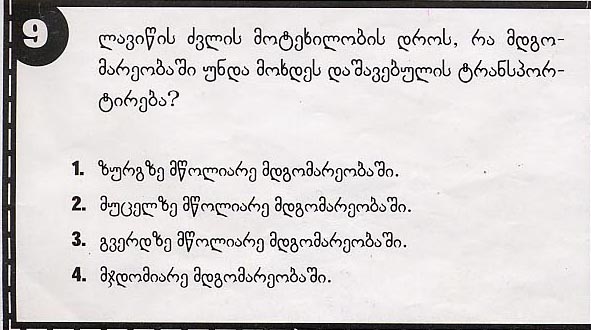 9
ლავიწის ძვლის მოტეხილობის დროს, რა მდგო-
მარეობაში უნდა მოხდეს დაშავებულის ტრანსპორ-
ტირება?
1. ზურგზე მწოლიარე მდგომარეობაში.
2. მუცელზე მწოლიარე მდგომარეობაში.
3. გვერდზე მწოლიარე მდგომარეობაში.
4. მჯდომიარე მდგომარეობაში.